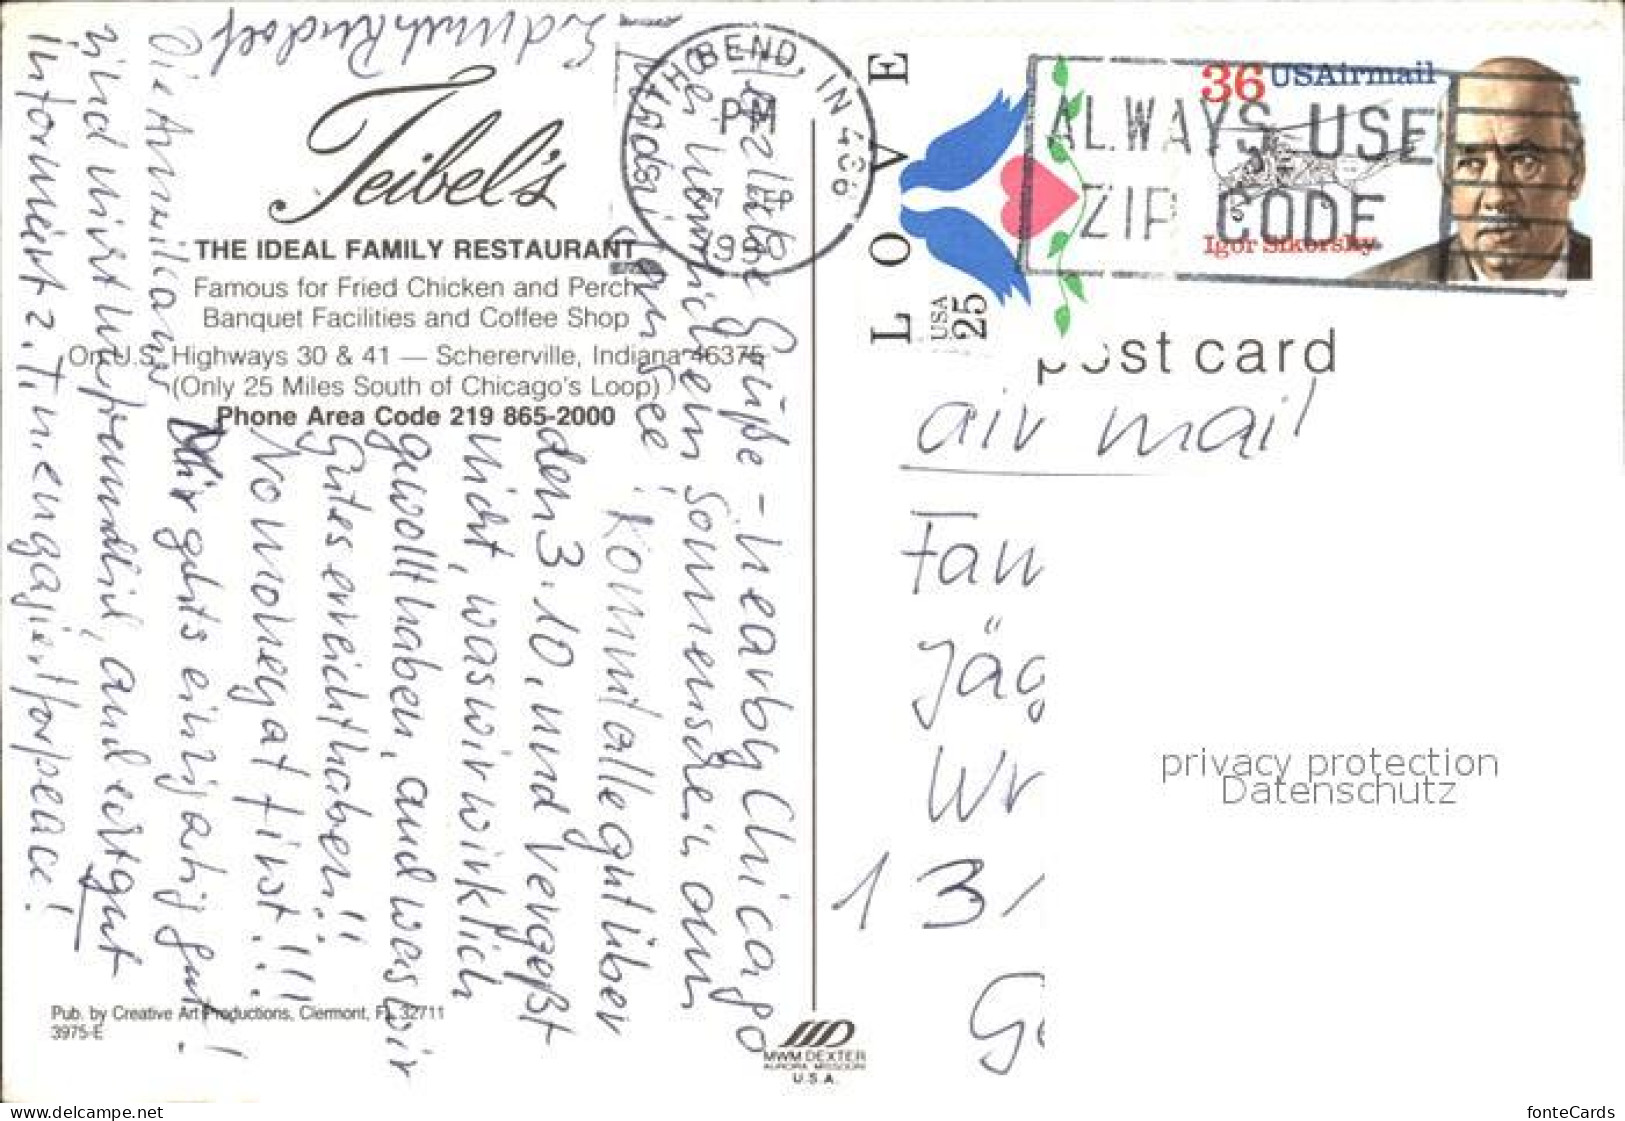 Teibel's
THE IDEAL FAMILY RESTAURANT
Famous for Fried Chicken and Perch
Banquet Facilities and Coffee Shop
On U.S. Highways 30 & 41 — Schererville, Indiana 46375
(Only 25 Miles South of Chicago's Loop)
Phone Area Code 219 865-2000
Herzliche Grüße - nearby Chicago
bei nämlichem Sonnenschein am
Kommt alle gut über
den 3.10. und vergeßt
nicht, was wir wirklich
gewollt haben, und was wir
Gutes erreicht haben!!
No monegat first!!!
Mir gehts einzigartig gut!
Die Amerikaner
sind
und echt gut
informiert z.T. u. engagiert for peace!
Edmuth Rudolf
Pub. by Creative Art Productions, Clermont, FL 32711
3975-E
MWM DEXTER
AURORA, MISSOURI
U.S.A.
BEND, IN 466
PM
199
ALWAYS USE
ZIP CODE
LOVE
USA
25
36 USAirmail
Igor Sikorsky
post card
air mail
Fam
Jäg
Wr
13
Ge
privacy protection
Datenschutz
www.delcampe.net
fonteCards